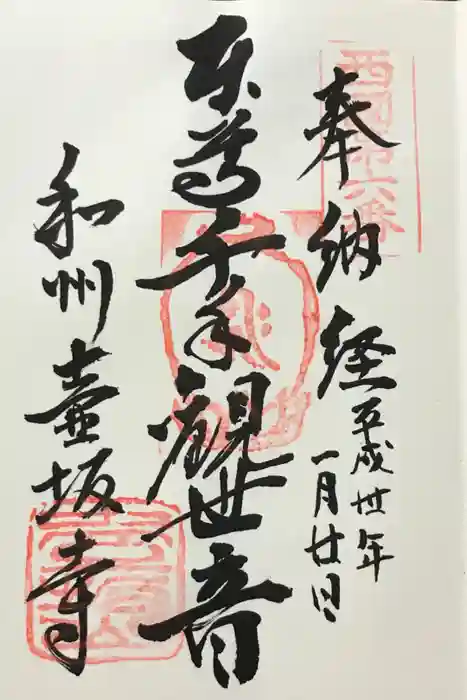 奉納経
平成卅年
一月廿日
西国第六番
本尊千手観世音
和州壷坂寺